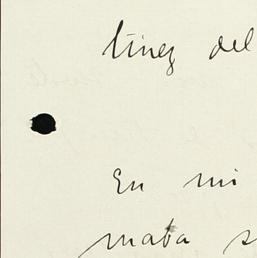 tínez del
En mi
maba s